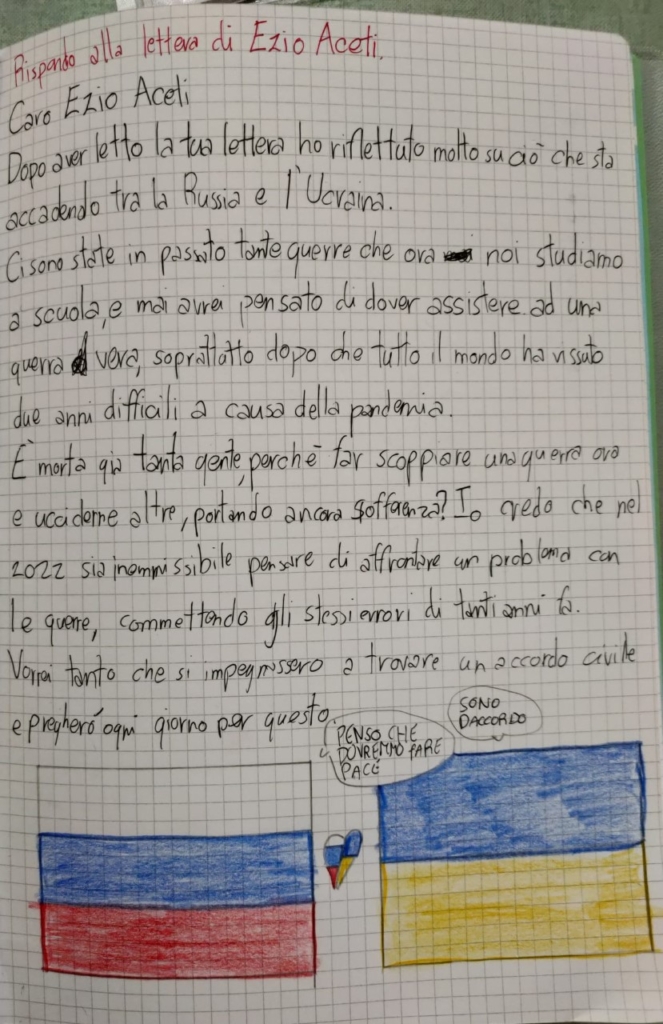 Rispondo alla lettera di Ezio Aceti.
Caro Ezio Aceti
Dopo aver letto la tua lettera ho riflettuto molto su ciò che sta
accadendo tra la Russia e l'Ucraina.
Ci sono state in passato tante guerre che ora noi studiamo
a scuola, e mai avrei pensato di dover assistere ad una
guerra vera, soprattutto dopo che tutto il mondo ha vissuto
due anni difficili a causa della pandemia.
È morta già tanta gente, perché far scoppiare una guerra ora
e ucciderne altre, portando ancora sofferenza? Io credo che nel
2022 sia inammissibile pensare di affrontare un problema con
le guerre, commettendo gli stessi errori di tanti anni fa.
Vorrei tanto che si impegnassero a trovare un accordo civile
e pregherò ogni giorno per questo.
PENSO CHE
DOVREMMO FARE
PACE
SONO
DACCORDO